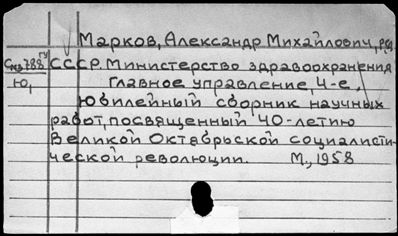 Марков, Александр Михайлович, ред.
СССР. Министерство здравоохранения
Главное управление, 4-е.
Ю,
Юбилейный сборник научных
работ, посвященный 40-летию
Великой Октябрьской социалисти-
ческой революции. М., 1958